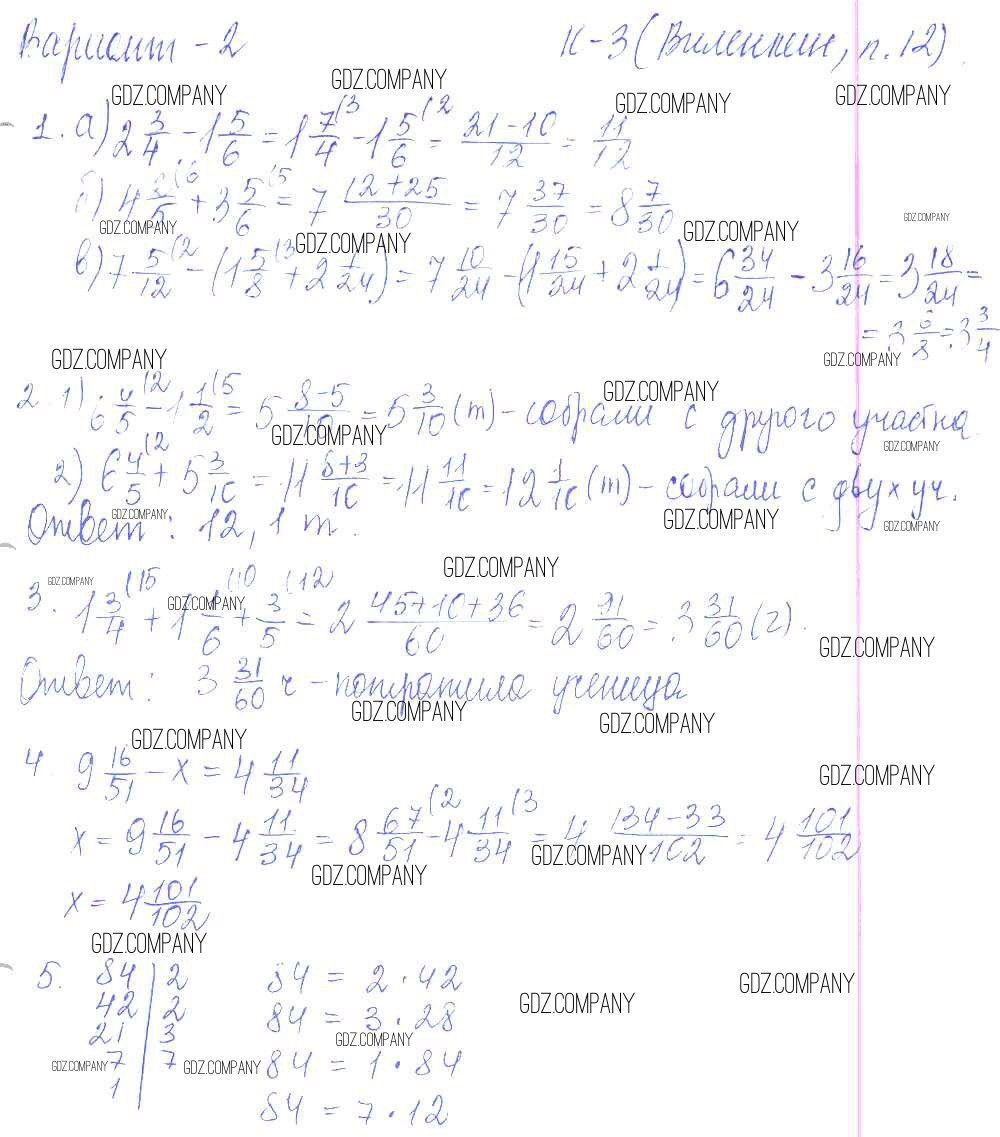 Вариант - 2 К-3 (Виленкин, п. 12)
GDZ.COMPANY GDZ.COMPANY GDZ.COMPANY GDZ.COMPANY
1. а) 2 3/4 - 1 5/6 = 1 7/4 (3 - 1 5/6 (2 = 21-10/12 = 11/12
б) 4 2/5 (6 + 3 5/6 (5 = 7 12+25/30 = 7 37/30 = 8 7/30
GDZ.COMPANY GDZ.COMPANY GDZ.COMPANY GDZ.COMPANY
в) 7 5/12 (2 - (1 5/8 (3 + 2 1/24) = 7 10/24 - (1 15/24 + 2 1/24) = 6 34/24 - 3 16/24 = 3 18/24 =
= 3 6/8 = 3 3/4
GDZ.COMPANY GDZ.COMPANY
2. 1) 6 4/5 (2 - 1 1/2 (5 = 5 8-5/10 = 5 3/10 (т) - собрали с другого участка
GDZ.COMPANY GDZ.COMPANY GDZ.COMPANY
2) 6 4/5 (2 + 5 3/10 = 11 8+3/10 = 11 11/10 = 12 1/10 (т) - собрали с двух уч.
Ответ: 12,1 т.
GDZ.COMPANY GDZ.COMPANY GDZ.COMPANY
GDZ.COMPANY GDZ.COMPANY
3. 1 3/4 (15 + 1 1/6 (10 + 3/5 (12 = 2 45+10+36/60 = 2 91/60 = 3 31/60 (г).
GDZ.COMPANY GDZ.COMPANY
Ответ: 3 31/60 ч - потратила ученица
GDZ.COMPANY GDZ.COMPANY
GDZ.COMPANY
4. 9 16/51 - x = 4 11/34
GDZ.COMPANY
x = 9 16/51 - 4 11/34 = 8 67/51 (2 - 4 11/34 (3 = 4 134-33/102 = 4 101/102
GDZ.COMPANY GDZ.COMPANY
x = 4 101/102
GDZ.COMPANY
5. 84 | 2 84 = 2 · 42
GDZ.COMPANY GDZ.COMPANY
42 | 2 84 = 3 · 28
21 | 3
GDZ.COMPANY
7 | 7 84 = 1 · 84
GDZ.COMPANY GDZ.COMPANY
1 | 84 = 7 · 12